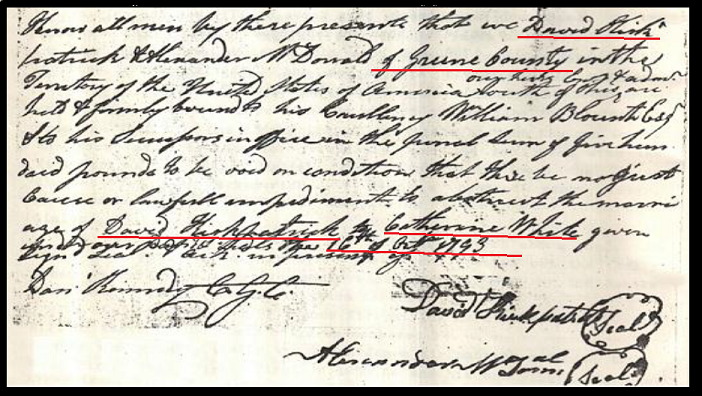 Know all men by these presents that we David Kirk
patrick & Alexander McDonald of Greene County in the
our heirs Exrs & admrs
Territory of the United States of America south of Ohio are
held & firmly bound to his Excellency William Blount Esqr
& to his Successors in office in the penal sum of five hun
dred pounds to be void on condition that there be no just
Cause or lawfull impediment to obstruct the marri
age of David Kirkpatrick & Catherine White given
under our hands & seals this 16th of Oct 1793
Sign Seal in presence of
Dan Kennedy
David Kirkpatrick Seal
Alexander McDonal Seal